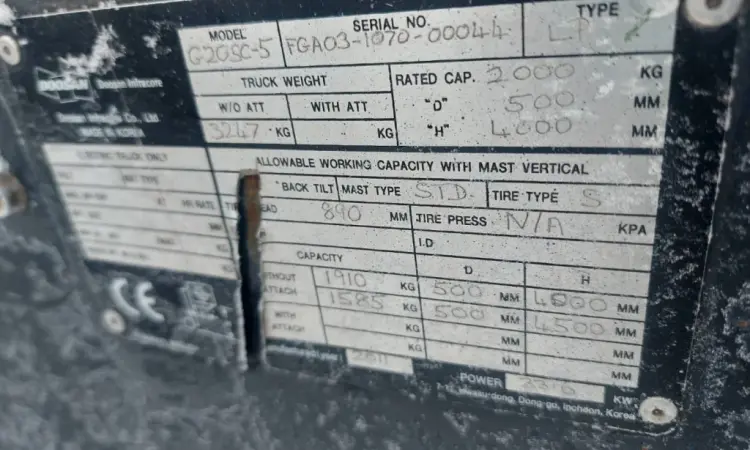 MODEL G20SC-5 SERIAL NO. FGA03-1070-00044 TYPE LP
DOOSAN Doosan Infracore
Doosan Infracore Co., Ltd.
MADE IN KOREA
TRUCK WEIGHT
W/O ATT WITH ATT
3247 KG KG
RATED CAP. 2000 KG
"D" 500 MM
"H" 4000 MM
ELECTRIC TRUCK ONLY
ALLOWABLE WORKING CAPACITY WITH MAST VERTICAL
BACK TILT MAST TYPE STD. TIRE TYPE S
890 MM TIRE PRESS. N/A KPA
I.D
CAPACITY D H
ATTACH 1910 KG 500 MM 4000 MM
1585 KG 500 MM 4500 MM
WITH ATTACH KG MM MM
KG MM MM
CE
2011
POWER KW
Dong-gu, Incheon, Korea